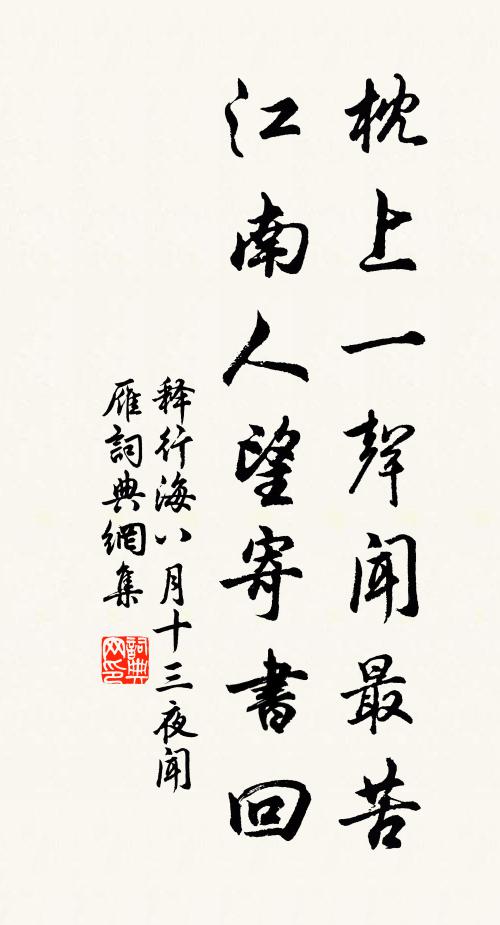 枕上一聲聞最苦
江南人望寄書回
释行海八月十三夜聞
雁詞典網集
詞典
网印